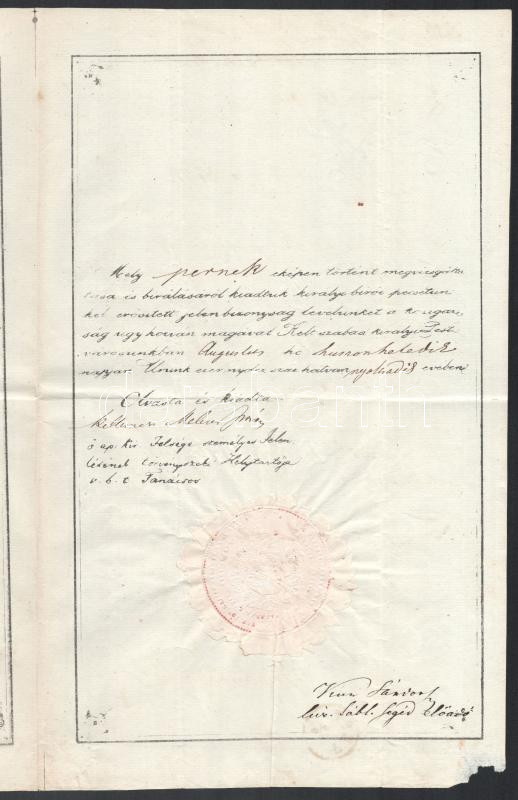 Mely pernek eképen történt megvizsgálta
tása és birálásáról kiadtuk királyi birói pecsétün
kel erősített jelen bizonyság levelünket a
ság ugy hozván magával Kelt szabad királyi Pest
városunkban Augustus hó huszonhetedik
napján Urunk ezer nyolcz száz hatvan nyolczadik évében
Olvasta és kiadta
Melczer István
ő ap. kir Felsége személyes Jelen
létének törvényszéki Helytartója
v. b. t Tanácsos
Sándor
kir. tábl. segéd előadó